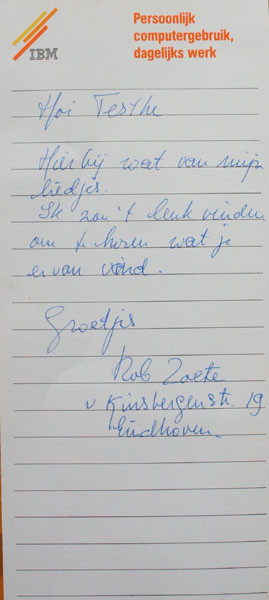 Persoonlijk
computergebruik,
dagelijks werk
IBM
Hoi Testhe
Hierbij wat van mijn
liedjes.
Ik zou 't leuk vinden
om te horen wat je
ervan vind.
Groetjes
Rob Zoete
v Kinsbergenstr. 19
Eindhoven